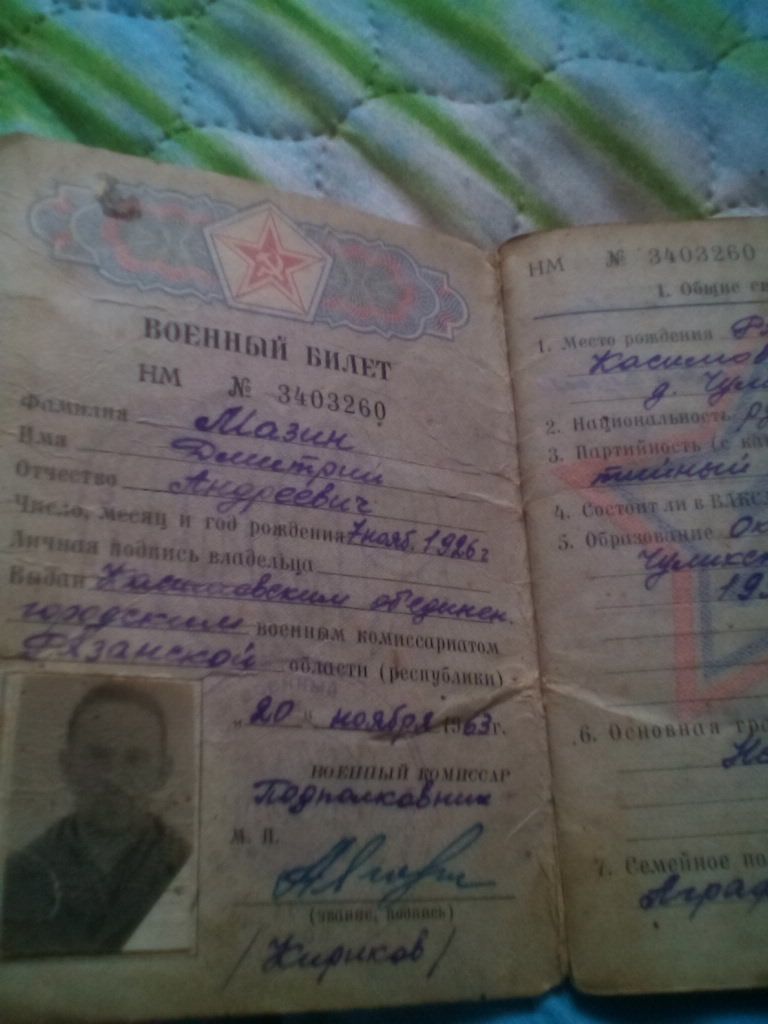 ВОЕННЫЙ БИЛЕТ
НМ № 3403260
Фамилия Мазин
Имя Дмитрий
Отчество Андреевич
Число, месяц и год рождения 7 нояб. 1926 г
Личная подпись владельца
Выдан Касимовским объединен.
городским военным комиссариатом
Рязанской области (республики)
„20" ноября 1963 г.
ВОЕННЫЙ КОМИССАР
Подполковник
М. П.
(звание, подпись)
/Кириков/
НМ № 3403260
1. Общие св
1. Место рождения Ря
Касимов
д. Чули
2. Национальность ру
3. Партийность (с ка
тийный
4. Состоит ли в ВЛКС
5. Образование
Чуликс
19
6. Основная гра
7. Семейное по
Аграф